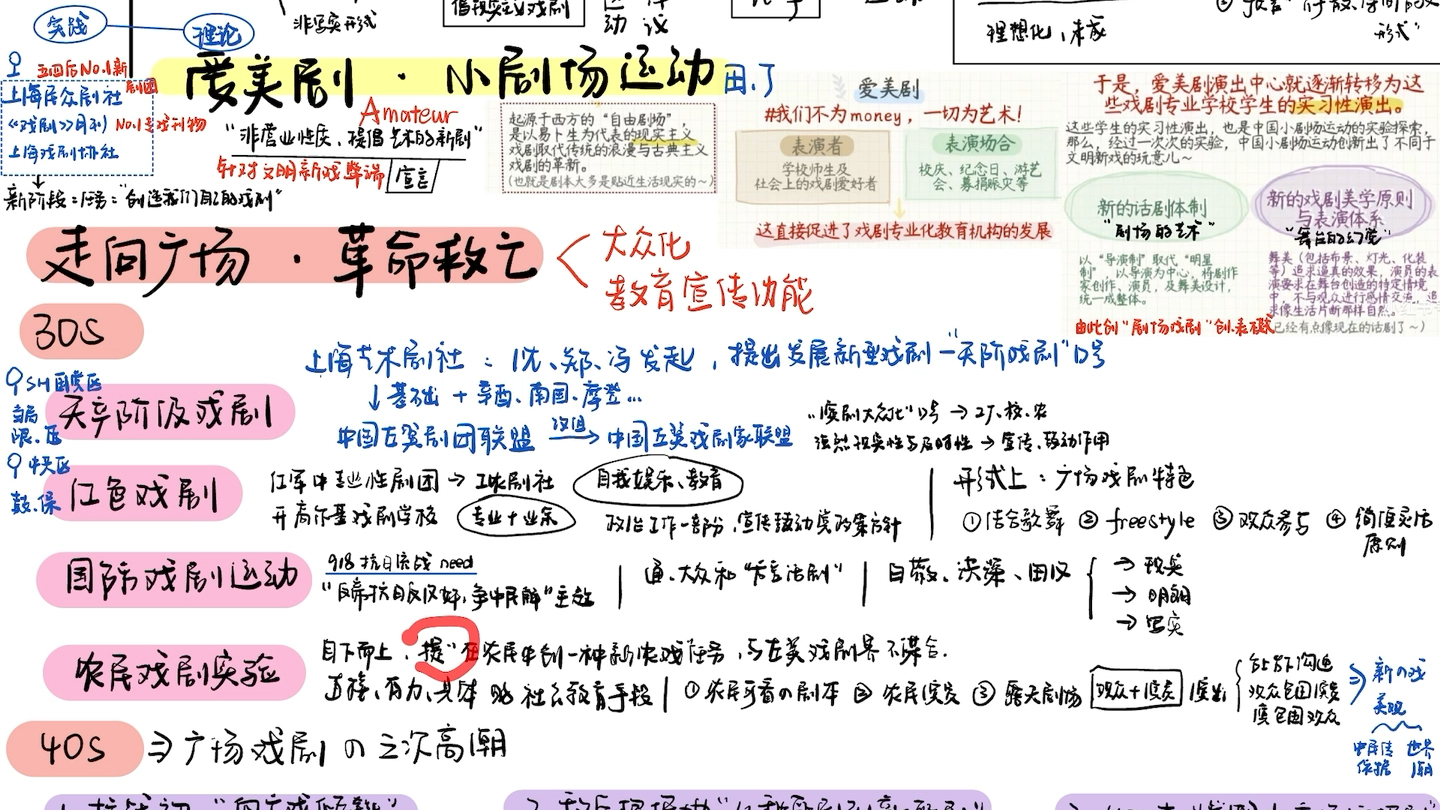 实践
理论
非写实形式
理想化、未来
形式”
五四后No.1新剧团
上海民众剧社
《戏剧》月刊 No.1专戏刊物
上海戏剧协社
新阶段=任务=“创造我们自己的戏剧”
爱美剧 · 小剧场运动 田.了
Amateur
“非营业性质、提倡艺术的新剧”
针对文明新戏弊端 宣言
起源于西方的“自由剧场”，
是以易卜生为代表的现实主义
戏剧取代传统的浪漫与古典主义
戏剧的革新。
(也就是剧本大多是贴近生活现实的~)
爱美剧
#我们不为money，一切为艺术！
表演者
学校师生及
社会上的戏剧爱好者
表演场合
校庆、纪念日、游艺
会、募捐赈灾等
这直接促进了戏剧专业化教育机构的发展
于是，爱美剧演出中心就逐渐转移为这
些戏剧专业学校学生的实习性演出。
这些学生的实习性演出，也是中国小剧场运动的实验探索，
那么，经过一次次的实验，中国小剧场运动创新出了不同于
文明新戏的玩意儿~
新的话剧体制
“剧场的艺术”
以“导演制”取代“明星
制”，以导演为中心，将剧作
家创作、演员，及舞美设计，
统一成整体。
新的戏剧美学原则
与表演体系
“舞台的幻觉”
舞美（包括布景、灯光、化装
等）追求逼真的效果，演员的表
演要求在舞台创造的特定情境
中，不与观众进行感情交流，追
求像生活片断那样自然。
已经有点像现在的话剧了~）
由此创“剧场戏剧”
走向广场 · 革命救亡
大众化
教育宣传功能
30s
上海艺术剧社：沈、郑、冯发起，提出发展新型戏剧—“无阶戏剧”口号
↓基础 + 辛酉、南国、摩登...
中国左翼剧团联盟 改组→ 中国左翼戏剧家联盟
“演剧大众化”口号 → 工、校、农
强烈现实性与及时性 → 宣传、鼓动作用
SH国党区
无产阶级戏剧
中央区
鼓.保
红色戏剧
红军中专业性剧团 → 工农剧社 自我娱乐、教育
开高尔基戏剧学校 专业+业余
政治工作一部份，宣传鼓动党政策方针
形式上：广场戏剧特色
①结合歌舞 ② freestyle ③ 观众参与 ④ 简便灵活原则
国防戏剧运动
918 抗日流战 need
通、大众和“方言话剧”
→ 现实
→ 明朗
→ 写实
农民戏剧实验
自下而上，提“在农民中创一种新农戏任务，与左翼戏剧界不谋合.
直接、有力、具体 的 社会教育手段
①农民可看の剧本 ② 农民演员 ③ 露天剧场 观众+演员 演出
台上台下沟通
观众包围演员
演包围观众
新の戏
美观
中民传 世界
依据 潮
40s ⇒ 广场戏剧 の 三次高潮